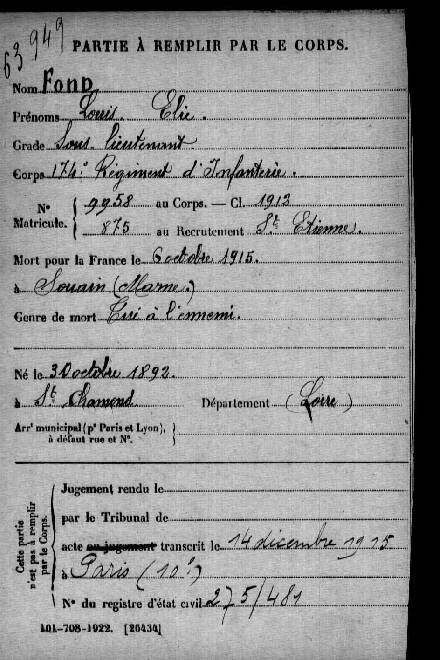 63 949
PARTIE À REMPLIR PAR LE CORPS.
Nom FOND
Prénoms Louis Elie.
Grade Sous lieutenant
Corps 174e Régiment d'Infanterie.
N° Matricule. { 9958 au Corps. — Cl. 1912
875 au Recrutement St Etienne.
Mort pour la France le 6 octobre 1915.
à Souain (Marne)
Genre de mort Tué à l'ennemi.
Né le 3 Octobre 1892.
à St Chamond Département (Loire)
Arrt municipal (pr Paris et Lyon), à défaut rue et N°. }
Cette partie n'est pas à remplir par le Corps.
Jugement rendu le
par le Tribunal de
acte ou jugement transcrit le 14 décembre 1915
à Paris (10e)
N° du registre d'état civil 275/481
101-708-1922. [26434]